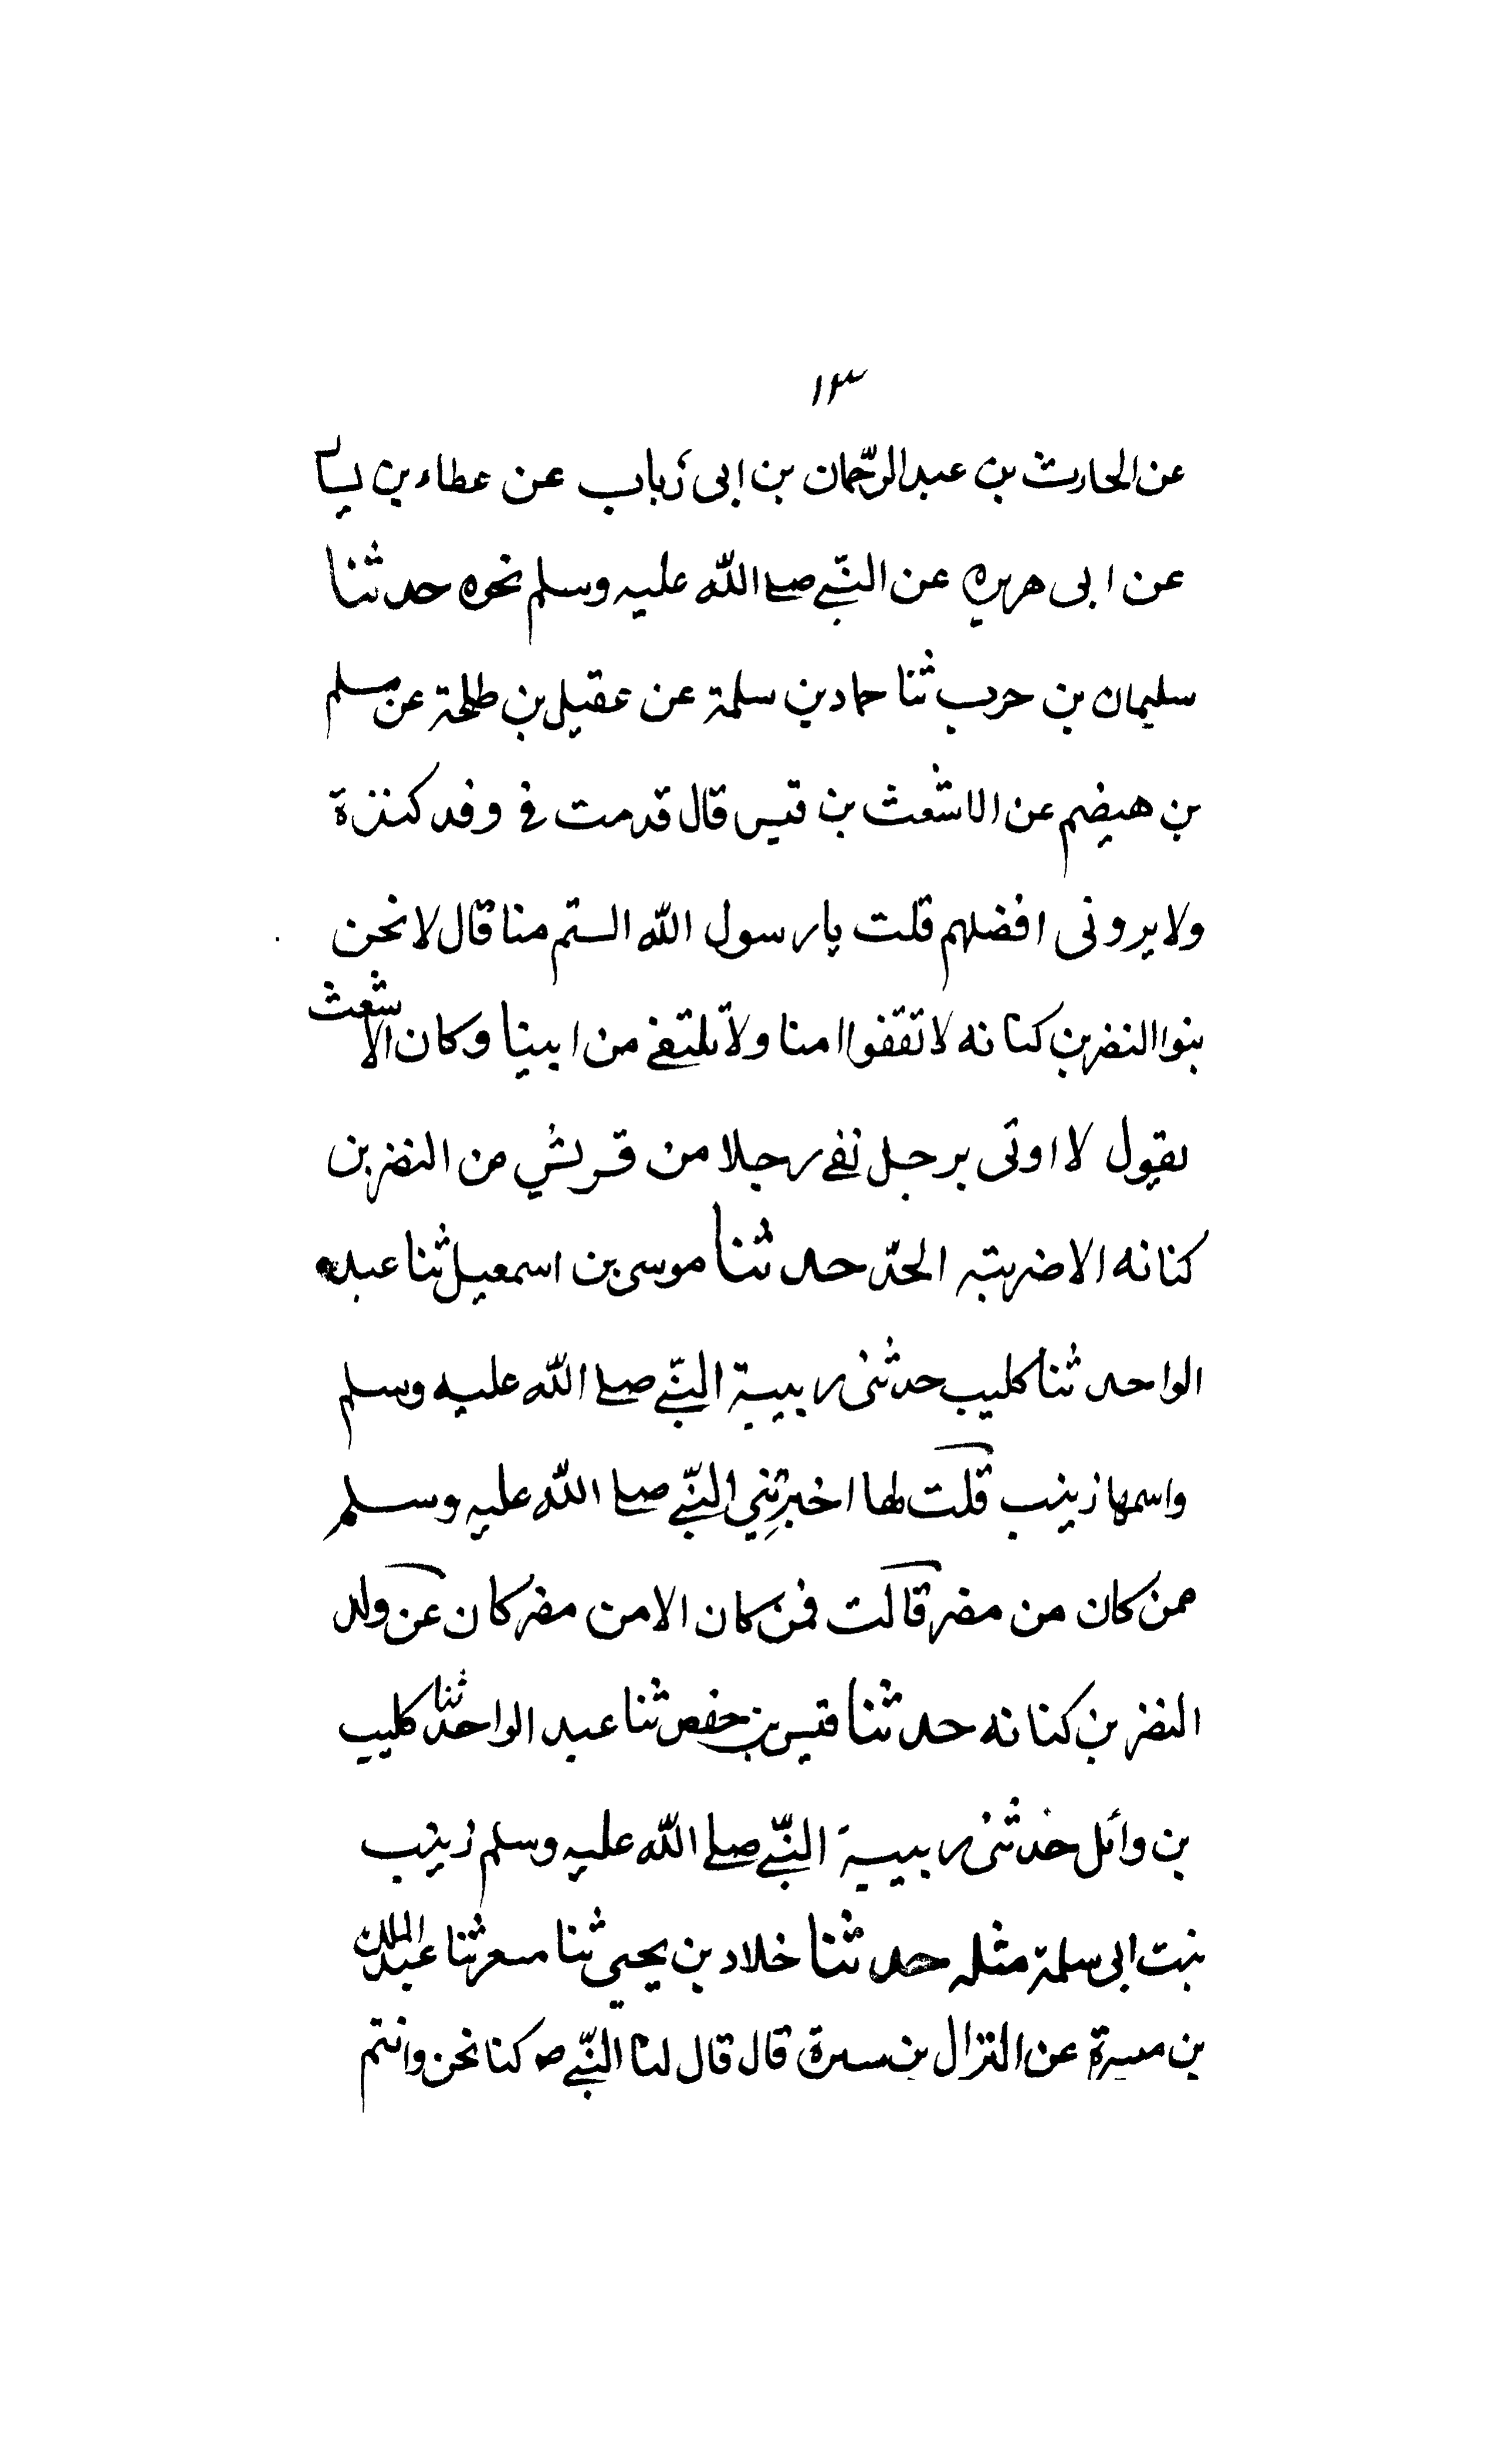 ١٣
عن الحارث بن عبد الرحّمان بن ابى ذباب عن عطاء بن يسار
عن ابى هريره عن النبّي صلى اللّه عليه وسلم نحوه حدثنا
سليمان بن حرب ثنا حماد بن سلمة عن عقيل بن طلحة عن مسلم
بن هيضم عن الاشعث بن قيس قال قدمت فى وفد كندة
ولا يرونى افضلهم قلت يا رسول اللّه الستم منا قال لا نحن
بنوا النضر بن كنانه لا تقفوا امنا ولا نلتفى من ابينا وكان الاشعث
يقول لا اوتى برجل نفى رجلا من قريش من النضر بن
كنانه الا ضربته الحدّ حدثنا موسى بن اسمعيل ثنا عبد
الواحد ثنا كليب حدثنى ربيبة النبّي صلى اللّه عليه وسلم
واسمها زينب قلت لها اخبرتِني النبّي صلى اللّه عليه وسلم
ممن كان من مضر قالت فمن كان الا من مضر كان من ولد
النضر بن كنانه حدثنا قيس بن حفص ثنا عبد الواحد ثنا كليب
بن وائل حدثنى ربيبة النبّي صلى اللّه عليه وسلم زينب
بنت ابى سلمة مثله حدثنا خلاد بن يحيى ثنا مسعر ثنا عبد الملك
بن ميسرة عن النزال بن سبرة قال قال لنا النبّي ص كنا نحن وانتم